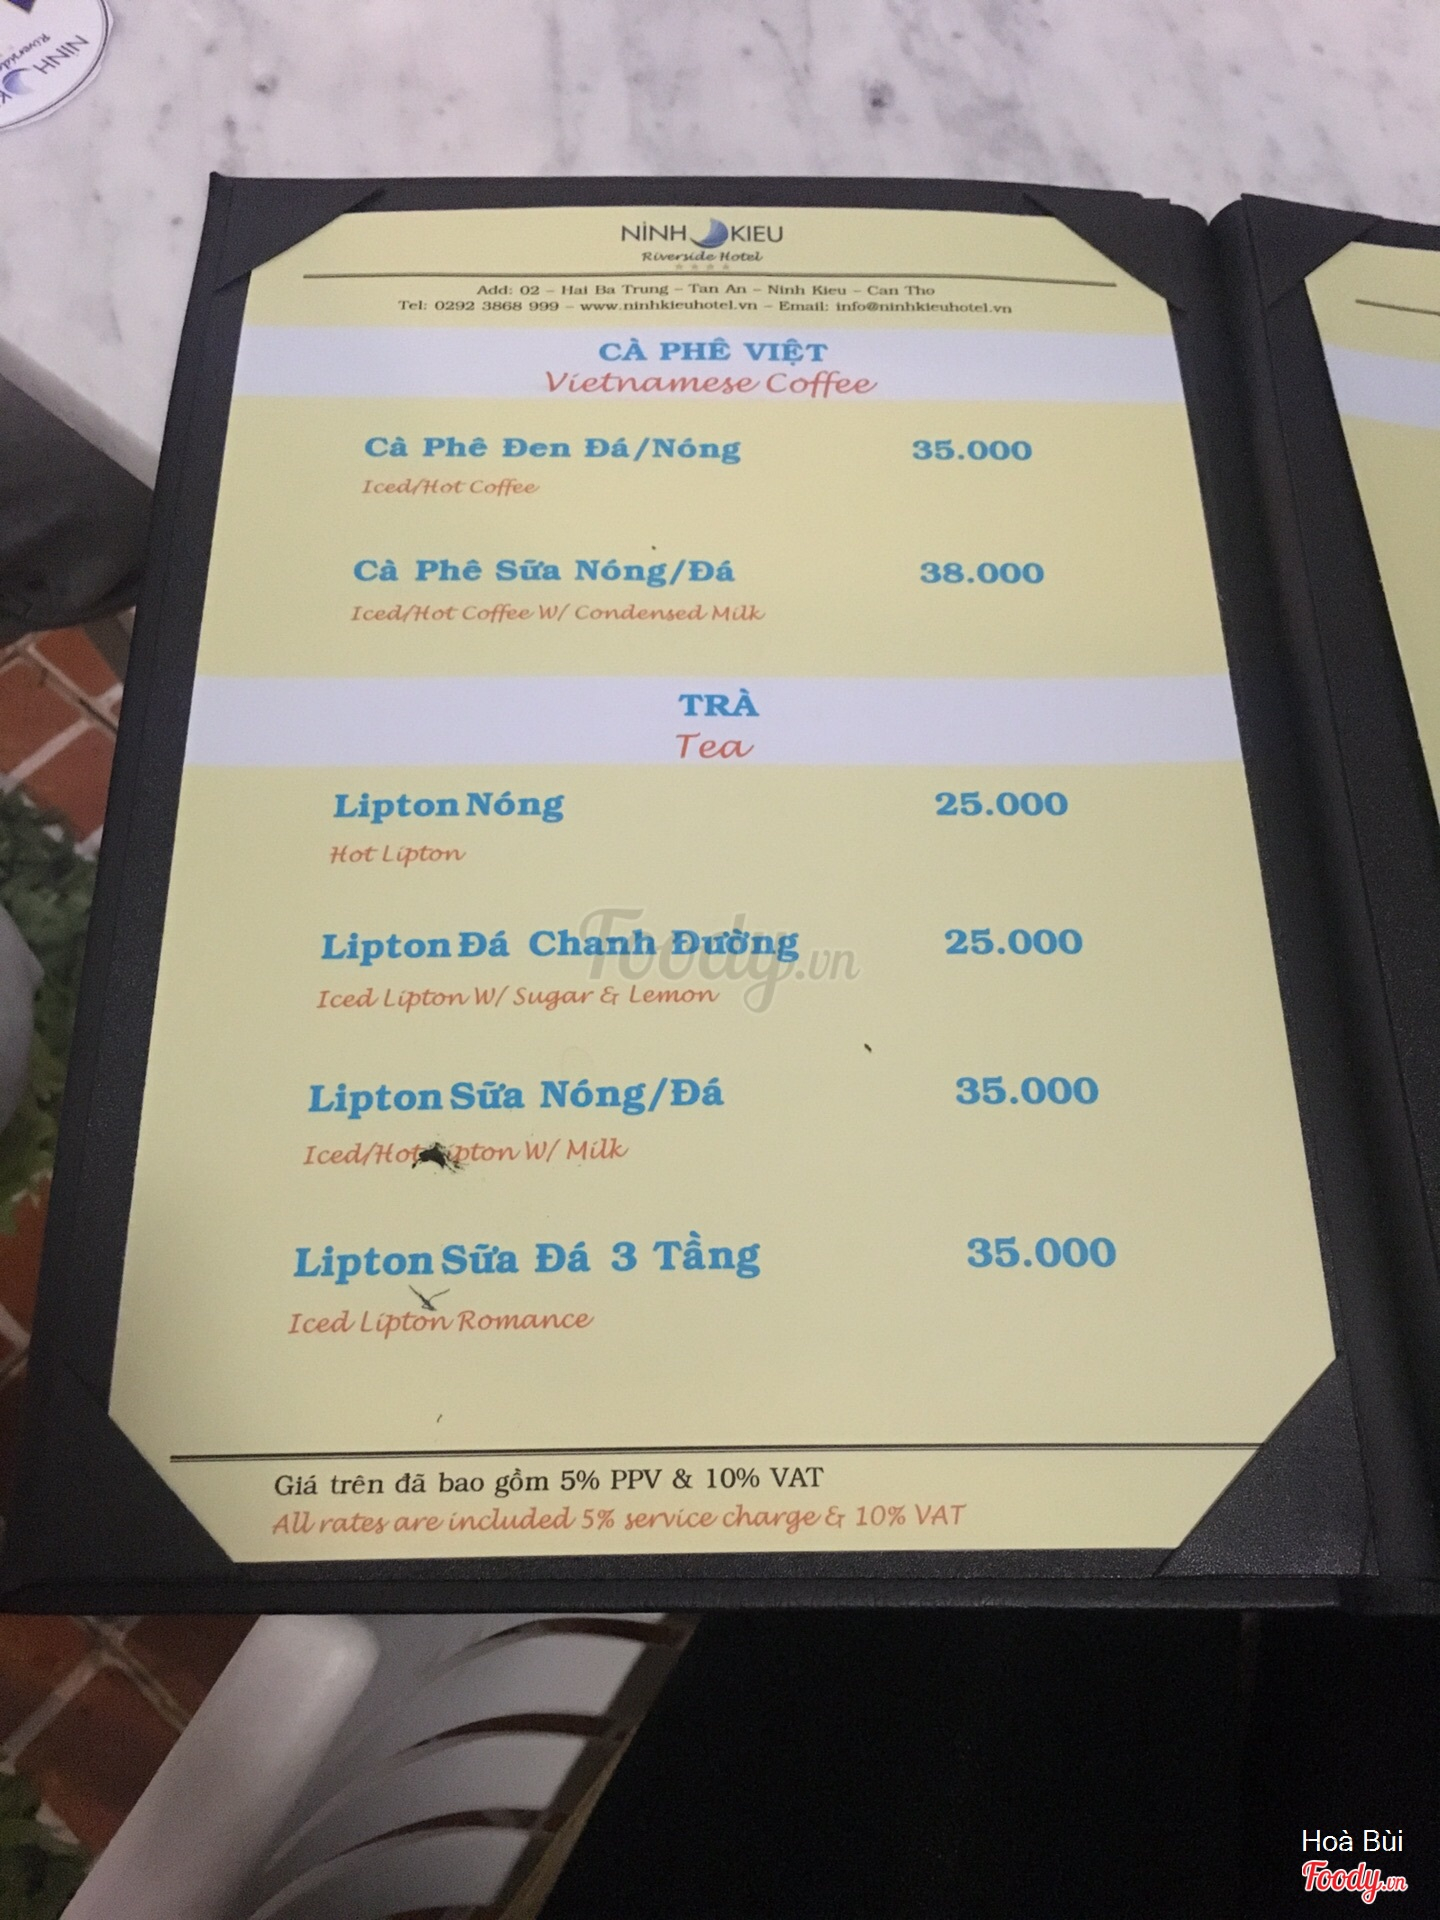 NINH KIEU
Riverside Hotel
Add: 02 - Hai Ba Trung - Tan An - Ninh Kieu - Can Tho
Tel: 0292 3868 999 - www.ninhkieuhotel.vn - Email: info@ninhkieuhotel.vn
CÀ PHÊ VIỆT
Vietnamese Coffee
Cà Phê Đen Đá/Nóng 35.000
Iced/Hot Coffee
Cà Phê Sữa Nóng/Đá 38.000
Iced/Hot Coffee W/ Condensed Milk
TRÀ
Tea
Lipton Nóng 25.000
Hot Lipton
Lipton Đá Chanh Đường 25.000
Iced Lipton W/ Sugar & Lemon
Lipton Sữa Nóng/Đá 35.000
Iced/Hot Lipton W/ Milk
Lipton Sữa Đá 3 Tầng 35.000
Iced Lipton Romance
Giá trên đã bao gồm 5% PPV & 10% VAT
All rates are included 5% service charge & 10% VAT
Foody.vn
Hoà Bùi
Foody.vn